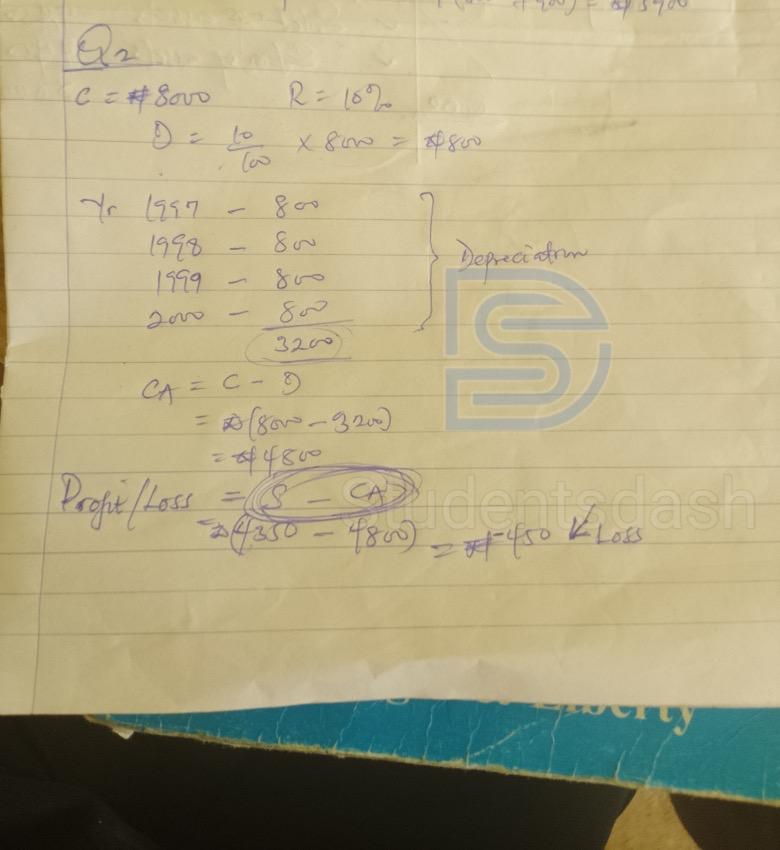 = ₦3900
Q2
C = ₦8000 R = 10%
D = 10/100 × 8000 = ₦800
Yr 1997 - 800
1998 - 800
1999 - 800
2000 - 800
3200
Depreciation
CA = C - D
= ₦(8000 - 3200)
= ₦4800
Profit/Loss = S - CA
= ₦(4350 - 4800) = ₦-450 Loss
Studentsdash
Liberty